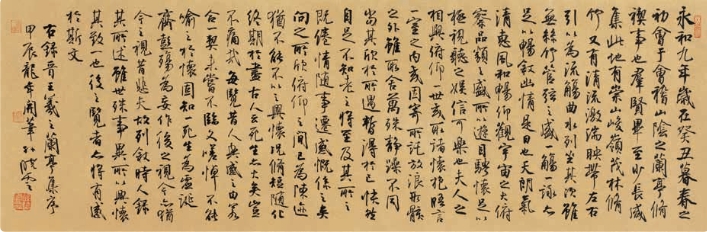 永和九年歲在癸丑暮春之
初會于會稽山陰之蘭亭脩
禊事也羣賢畢至少長咸
集此地有崇山峻嶺茂林脩
竹又有清流激湍映帶左右
引以為流觴曲水列坐其次雖
無絲竹管弦之盛一觴一詠亦
足以暢敘幽情是日也天朗氣
清惠風和暢仰觀宇宙之大俯
察品類之盛所以遊目騁懷足以
極視聽之娛信可樂也夫人之
相與俯仰一世或取諸懷抱悟言
一室之內或因寄所託放浪形骸
之外雖取舍萬殊靜躁不同
當其欣於所遇暫得於己快然
自足不知老之將至及其所之
既倦情隨事遷感慨係之矣
向之所欣俯仰之間已為陳迹
猶不能不以之興懷況脩短隨化
終期於盡古人云死生亦大矣豈
不痛哉每覽昔人興感之由若
合一契未嘗不臨文嗟悼不能
喻之於懷固知一死生為虛誕
齊彭殤為妄作後之視今亦猶
今之視昔悲夫故列敘時人錄
其所述雖世殊事異所以興懷
其致一也後之覽者亦將有感
於斯文
右錄晉王羲之蘭亭集序
甲辰龍年開筆孫曉雲